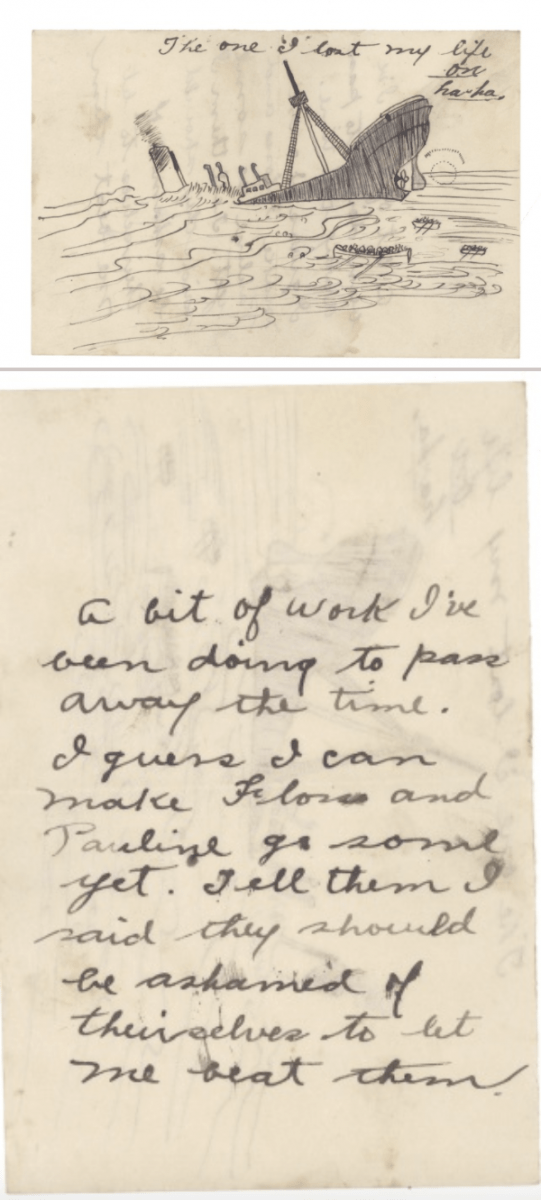 The one I lost my life
on
ha-ha.
A bit of work I've
been doing to pass
away the time.
I guess I can
make Floss and
Pauline go some
yet. Tell them I
said they should
be ashamed of
theirselves to let
me beat them.